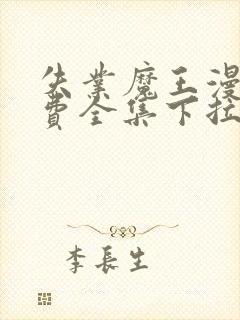 失業魔王漫
費全集下拉
李長生